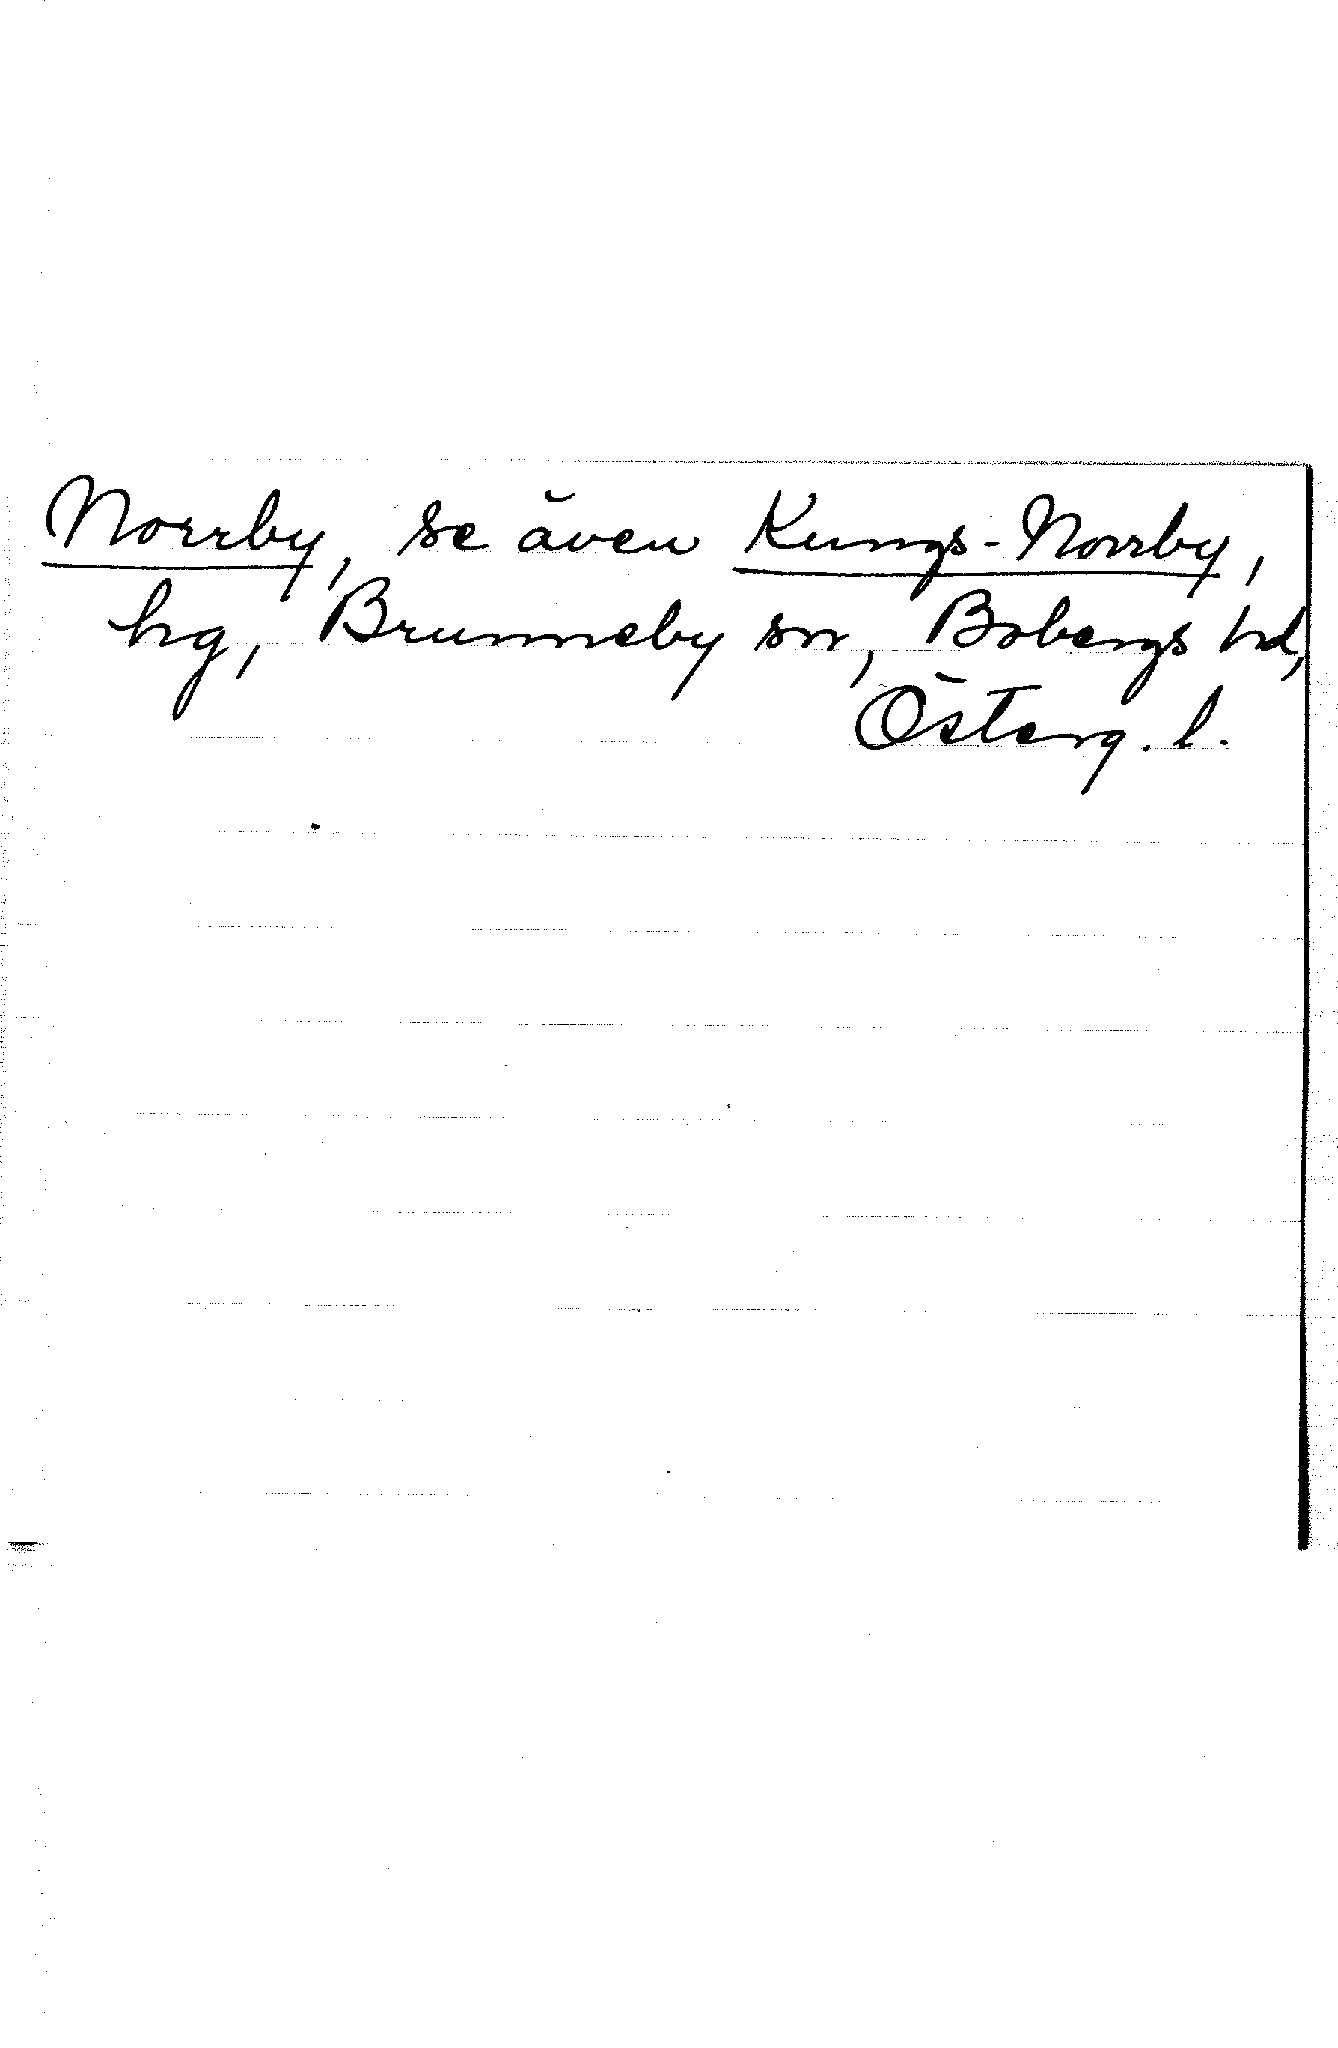 Norrby, se även Kungs-Norrby,
hg, Brunneby sn, Bobergs hd,
Österg. l.